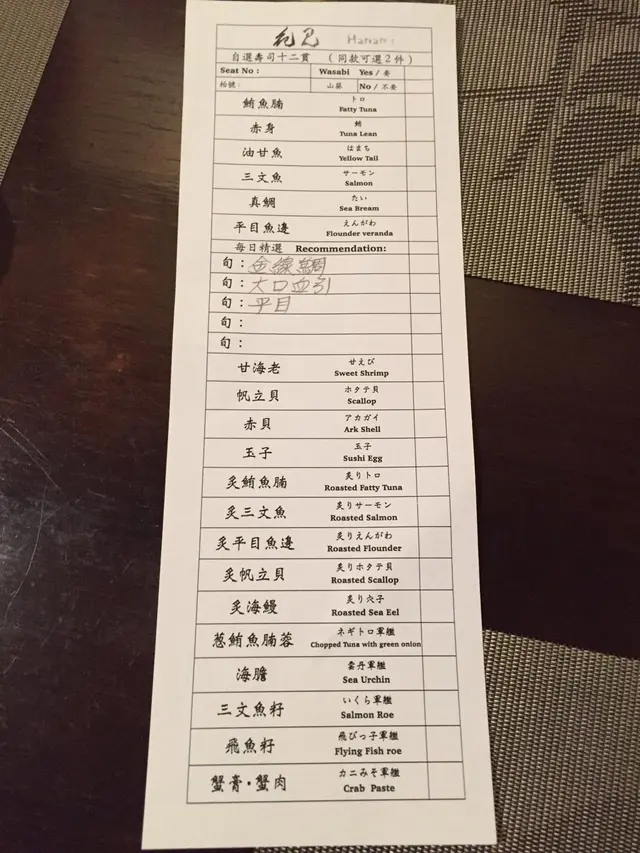 花見 Hanami
自選壽司十二貫 (同款可選2件)
Seat No : Wasabi Yes / 要
枱號: 山葵 No / 不要
鮪魚腩 トロ
Fatty Tuna
赤身 鮪
Tuna Lean
油甘魚 はまち
Yellow Tail
三文魚 サーモン
Salmon
真鯛 たい
Sea Bream
平目魚邊 えんがわ
Flounder veranda
每日精選 Recommendation:
旬：金線鯛
旬：大口血引
旬：平目
旬：
旬：
甘海老 甘えび
Sweet Shrimp
帆立貝 ホタテ貝
Scallop
赤貝 アカガイ
Ark Shell
玉子 玉子
Sushi Egg
炙鮪魚腩 炙りトロ
Roasted Fatty Tuna
炙三文魚 炙りサーモン
Roasted Salmon
炙平目魚邊 炙りえんがわ
Roasted Flounder
炙帆立貝 炙りホタテ貝
Roasted Scallop
炙海鰻 炙り穴子
Roasted Sea Eel
葱鮪魚腩蓉 ネギトロ軍艦
Chopped Tuna with green onion
海膽 雲丹軍艦
Sea Urchin
三文魚籽 いくら軍艦
Salmon Roe
飛魚籽 飛びっ子軍艦
Flying Fish roe
蟹膏・蟹肉 カニみそ軍艦
Crab Paste